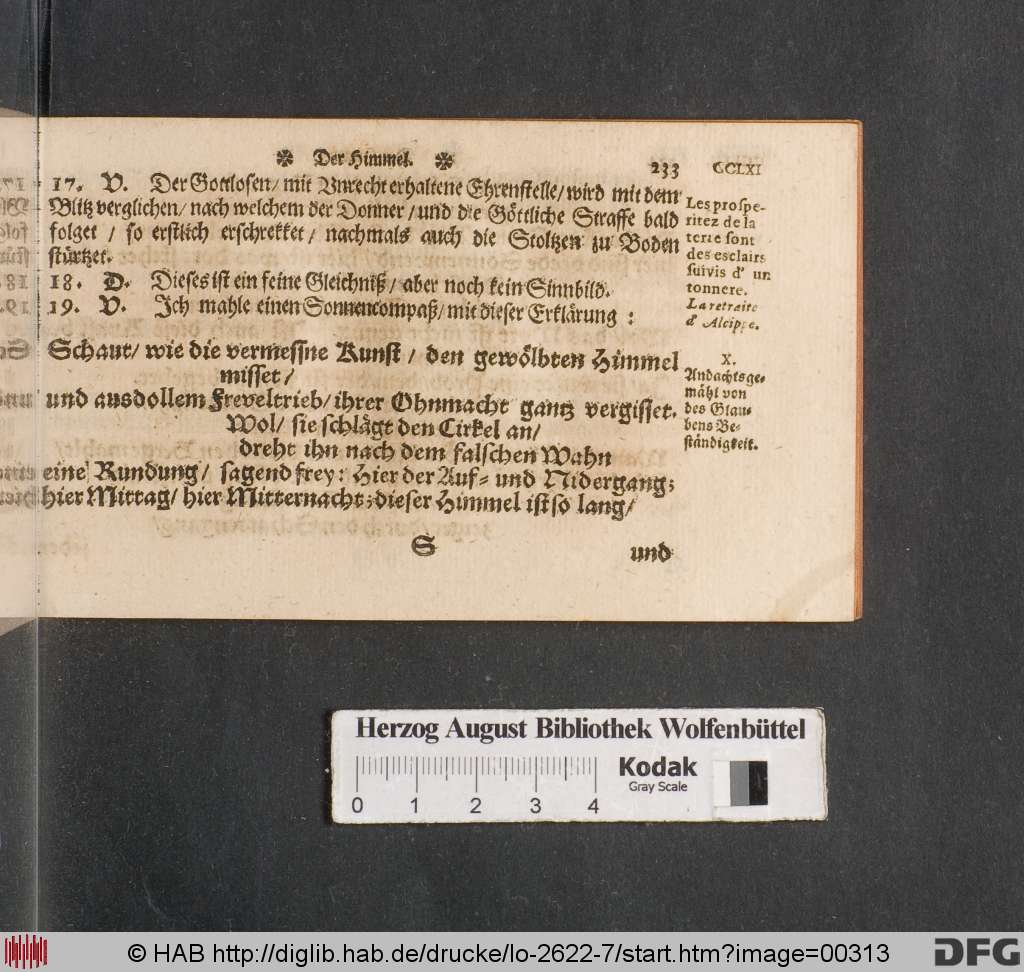 ✽ Der Himmel. ✽ 233 CCLXI
17. V. Der Gottlosen / mit Vnrecht erhaltene Ehrenstelle / wird mit dem
Blitz verglichen / nach welchem der Donner / und die Göttliche Straffe bald
folget / so erstlich erschrekket / nachmals auch die Stoltzen zu Boden
stürtzet.
18. D. Dieses ist ein feine Gleichniß / aber noch kein Sinnbild.
19. V. Ich mahle einen Sonnencompaß / mit dieser Erklärung :
Schaut / wie die vermessne Kunst / den gewölbten Himmel
misset /
und aus dollem Freveltrieb / ihrer Ohnmacht gantz vergisset.
Wol / sie schlägt den Cirkel an /
dreht ihn nach dem falschen Wahn
eine Rundung / sagend frey: Hier der Auf= und Nidergang;
hier Mittag / hier Mitternacht; dieser Himmel ist so lang /
S und
Les prospe-
ritez de la
terre sont
des esclairs
suivis d' un
tonnere.
La retraite
d' Alcippe.
X.
Andachtsge-
mähl von
des Glau-
bens Be-
ständigkeit.
Herzog August Bibliothek Wolfenbüttel
Kodak
Gray Scale
0 1 2 3 4
© HAB http://diglib.hab.de/drucke/lo-2622-7/start.htm?image=00313
DFG